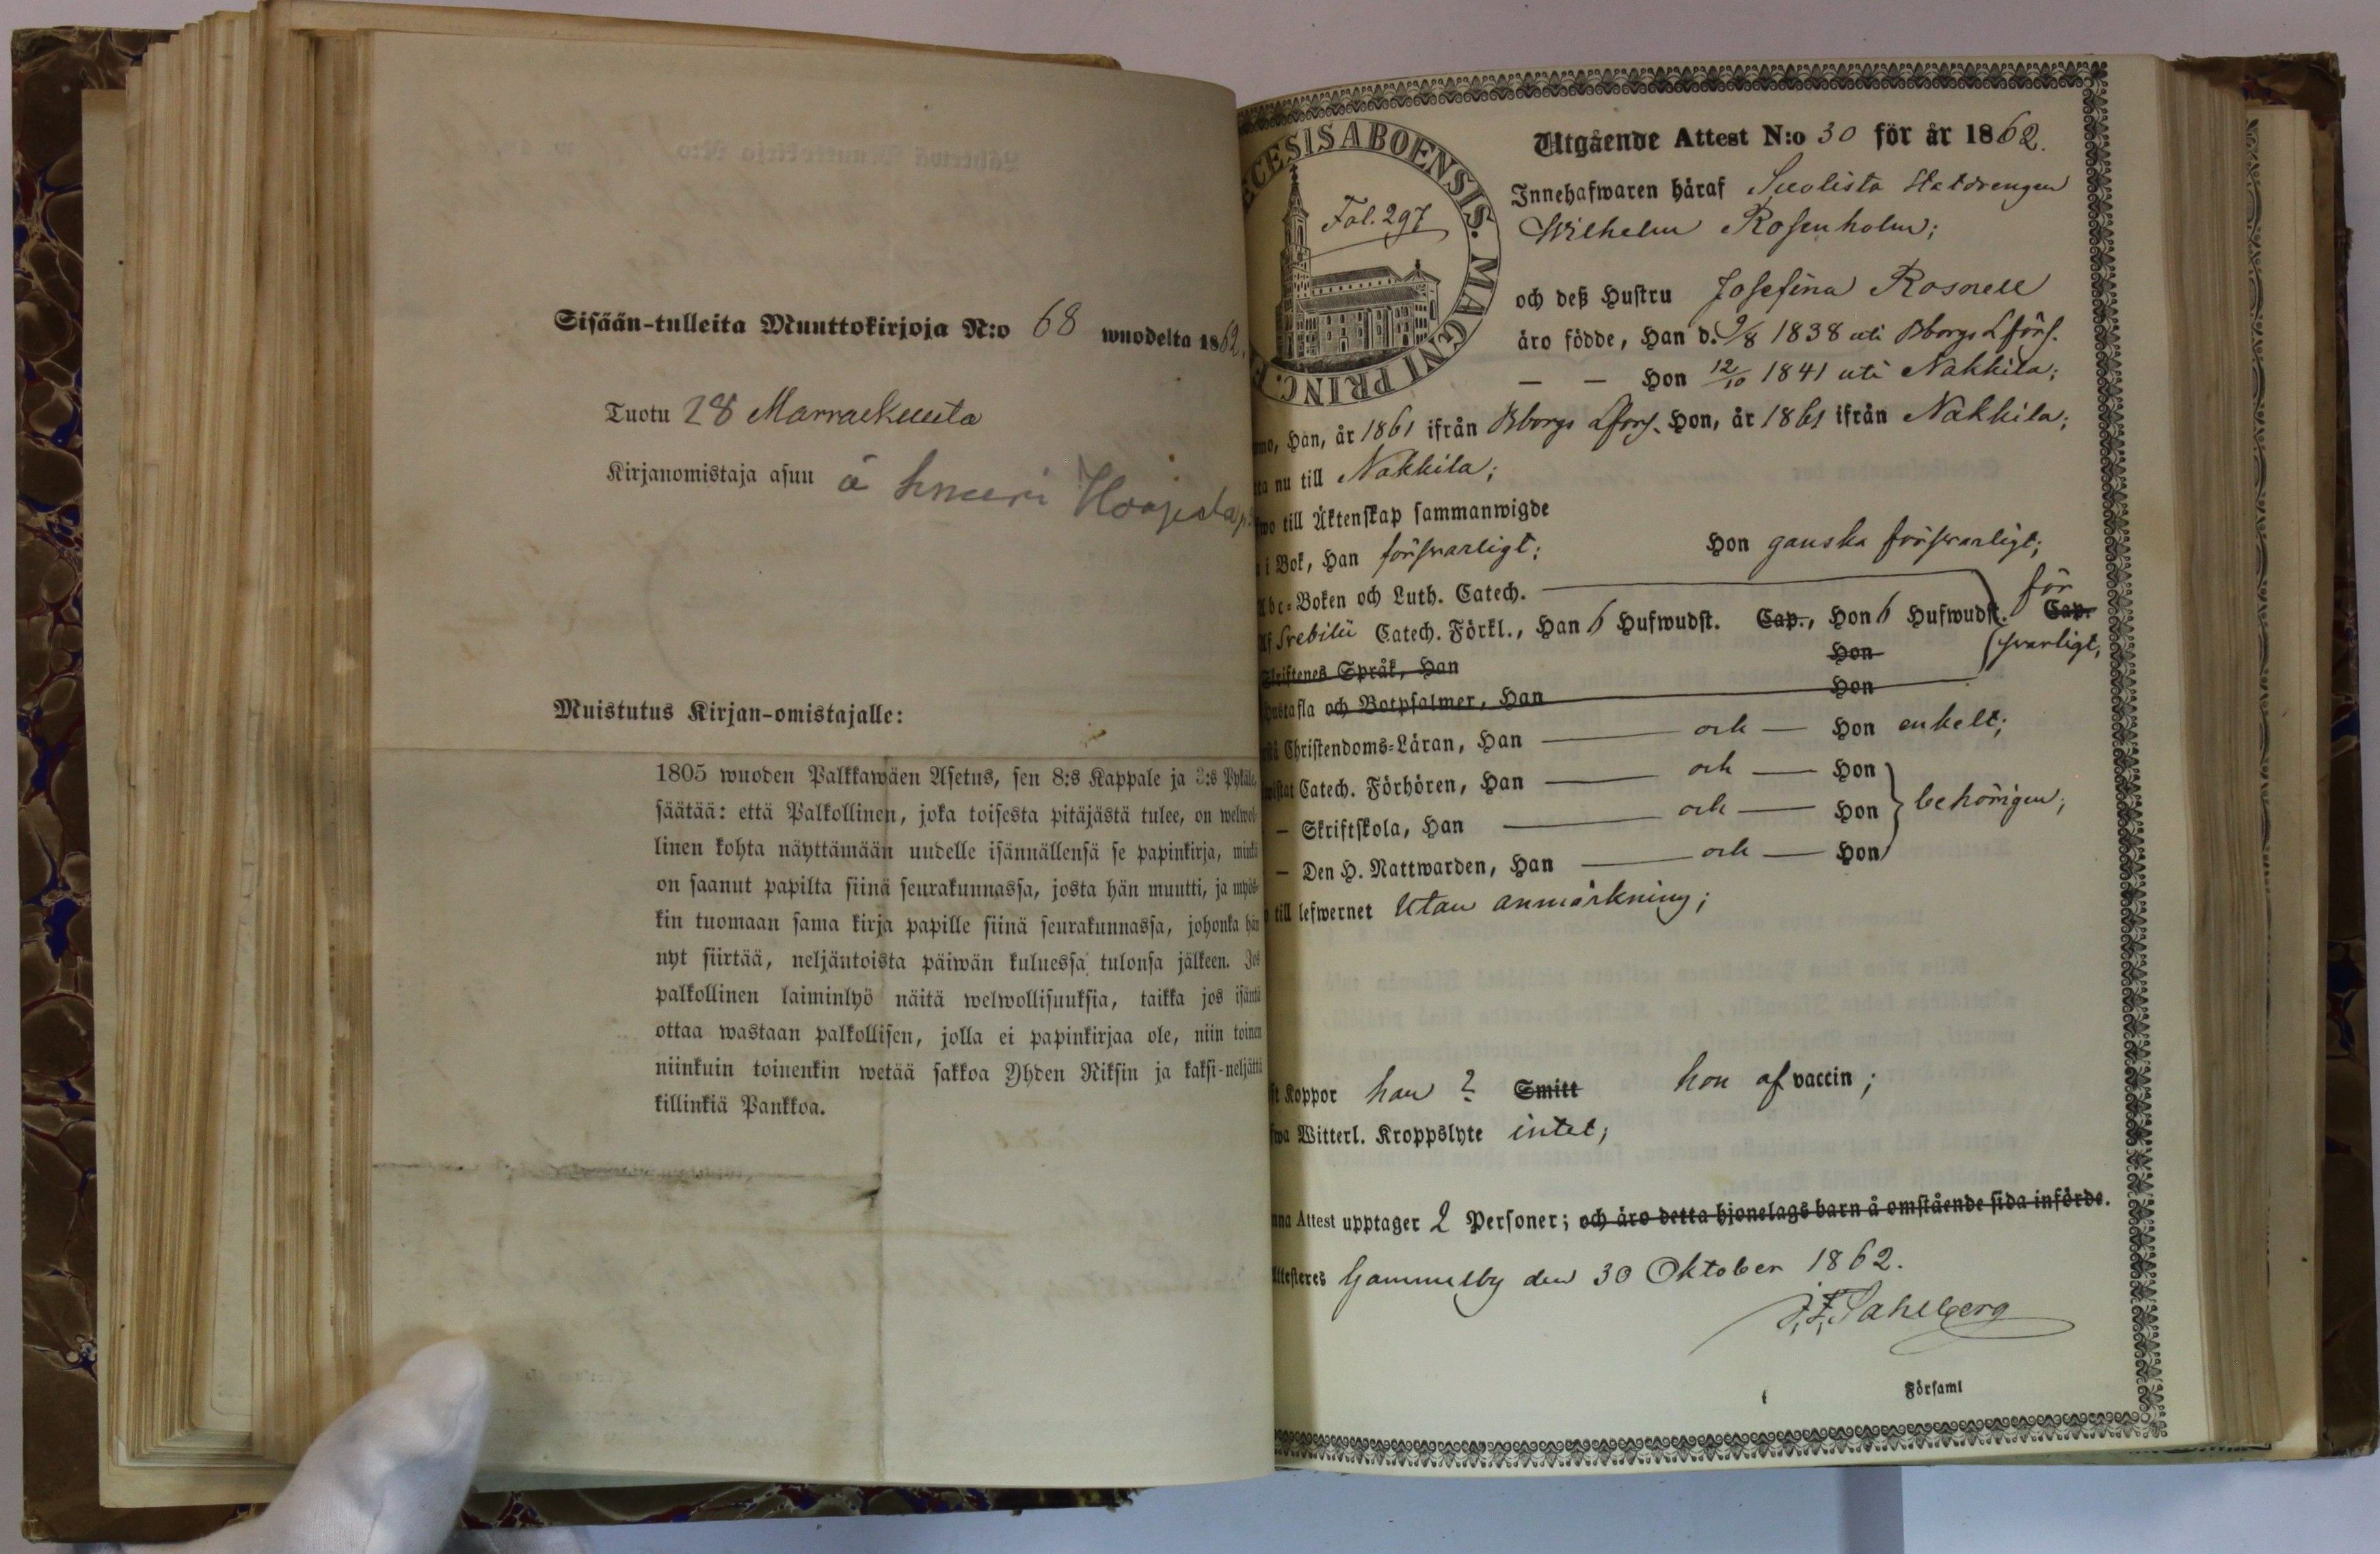 Sisään-tulleita Muuttokirjoja N:o 68 wuodelta 1862.
Tuotu 28 Marraskuuta
Kirjanomistaja asuu å
Muistutus Kirjan-omistajalle:
1805 wuoden Palkkawäen Asetus, sen 8:s Kappale ja 3:s Pykälä
säätää: että Palkollinen, joka toisesta pitäjästä tulee, on welwol-
linen kohta näyttämään uudelle isännällensä se papinkirja, minkä
on saanut papilta siinä seurakunnassa, josta hän muutti, ja myös-
kin tuomaan sama kirja papille siinä seurakunnassa, johonka hän
nyt siirtää, neljäntoista päiwän kuluessa tulonsa jälkeen. Jos
palkollinen laiminlyö näitä welwollisuuksia, taikka jos isäntä
ottaa wastaan palkollisen, jolla ei papinkirjaa ole, niin toinen
niinkuin toinenkin wetää sakkoa Yhden Riksin ja kaksi-neljättä
killinkiä Pankkoa.
ECESIS ABOENSIS. MAGNI PRINC. F
Fol. 297
Utgående Attest N:o 30 för år 1862.
Innehafwaren häraf Suolista Statdrengen
Wilhelm Rosenholm;
och deß Hustru Josefina Rosnell
äro födde, Han d. 9/8 1838 uti Bborgs Lförs.
— — Hon 12/10 1841 uti Nakkila;
mo, Han, år 1861 ifrån Bborgs Lförs. Hon, år 1861 ifrån Nakkila;
ta nu till Nakkila;
wo till Äktenskap sammanwigde
i Bok, Han försvarligt; Hon ganska försvarligt;
Abc-Boken och Luth. Catech. för
Af Svebilii Catech. Förkl., Han 6 Hufwudst. Cap., Hon 6 Hufwudst. Cap.
svarligt,
Skriftenes Språk, Han Hon
Hustafla och Botpsalmer, Han Hon
Christendoms-Läran, Han — och — Hon enkelt;
wistat Catech. Förhören, Han — och — Hon
— Skriftskola, Han — och — Hon behörigen;
— Den H. Nattwarden, Han — och — Hon
till lefwernet Utan anmärkning;
ft Koppor han ? Smitt hon af vaccin;
fwa Witterl. Kroppslyte intet;
nna Attest upptager 2 Personer; och äro detta hjonelags barn å omstående sida införde.
Attesteres Gammelby den 30 Oktober 1862.
J. F. Sahlberg
Församl